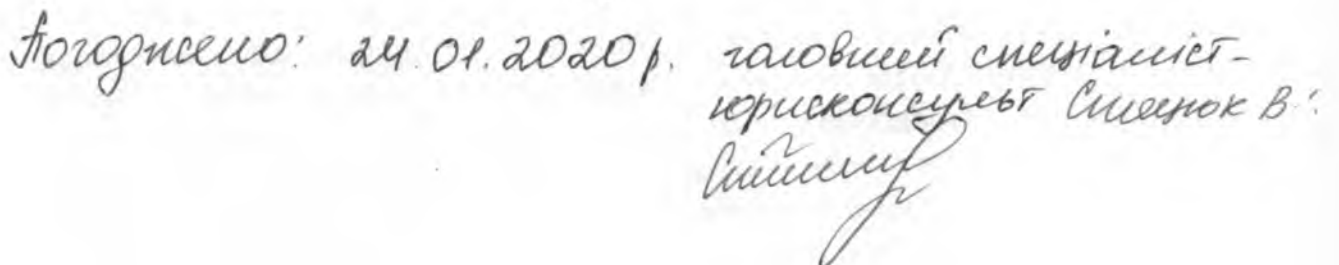 Погоджено: 24.01.2020 р. головний спеціаліст-
юрисконсульт В.